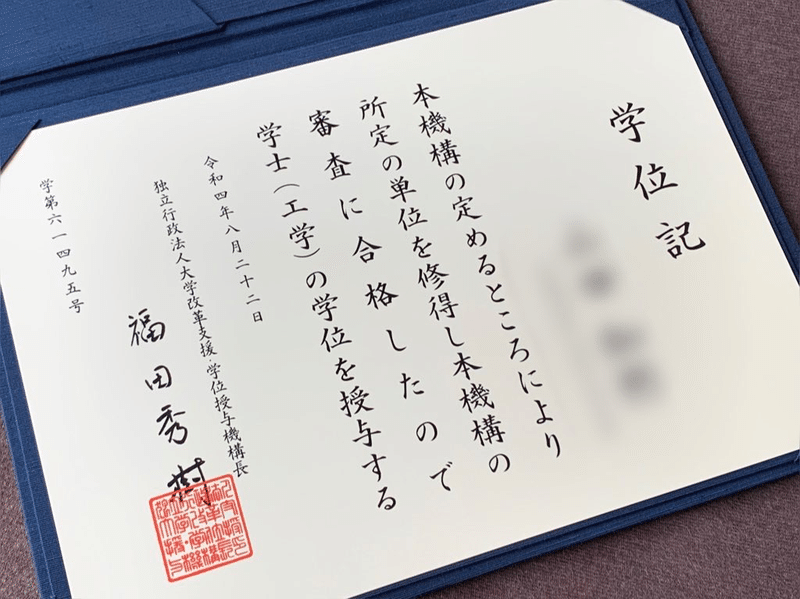 学位記
本機構の定めるところにより
所定の単位を修得し本機構の
審査に合格したので
学士(工学)の学位を授与する
令和四年八月二十二日
独立行政法人大学改革支援・学位授与機構長
福田秀樹
学第六一四九五号